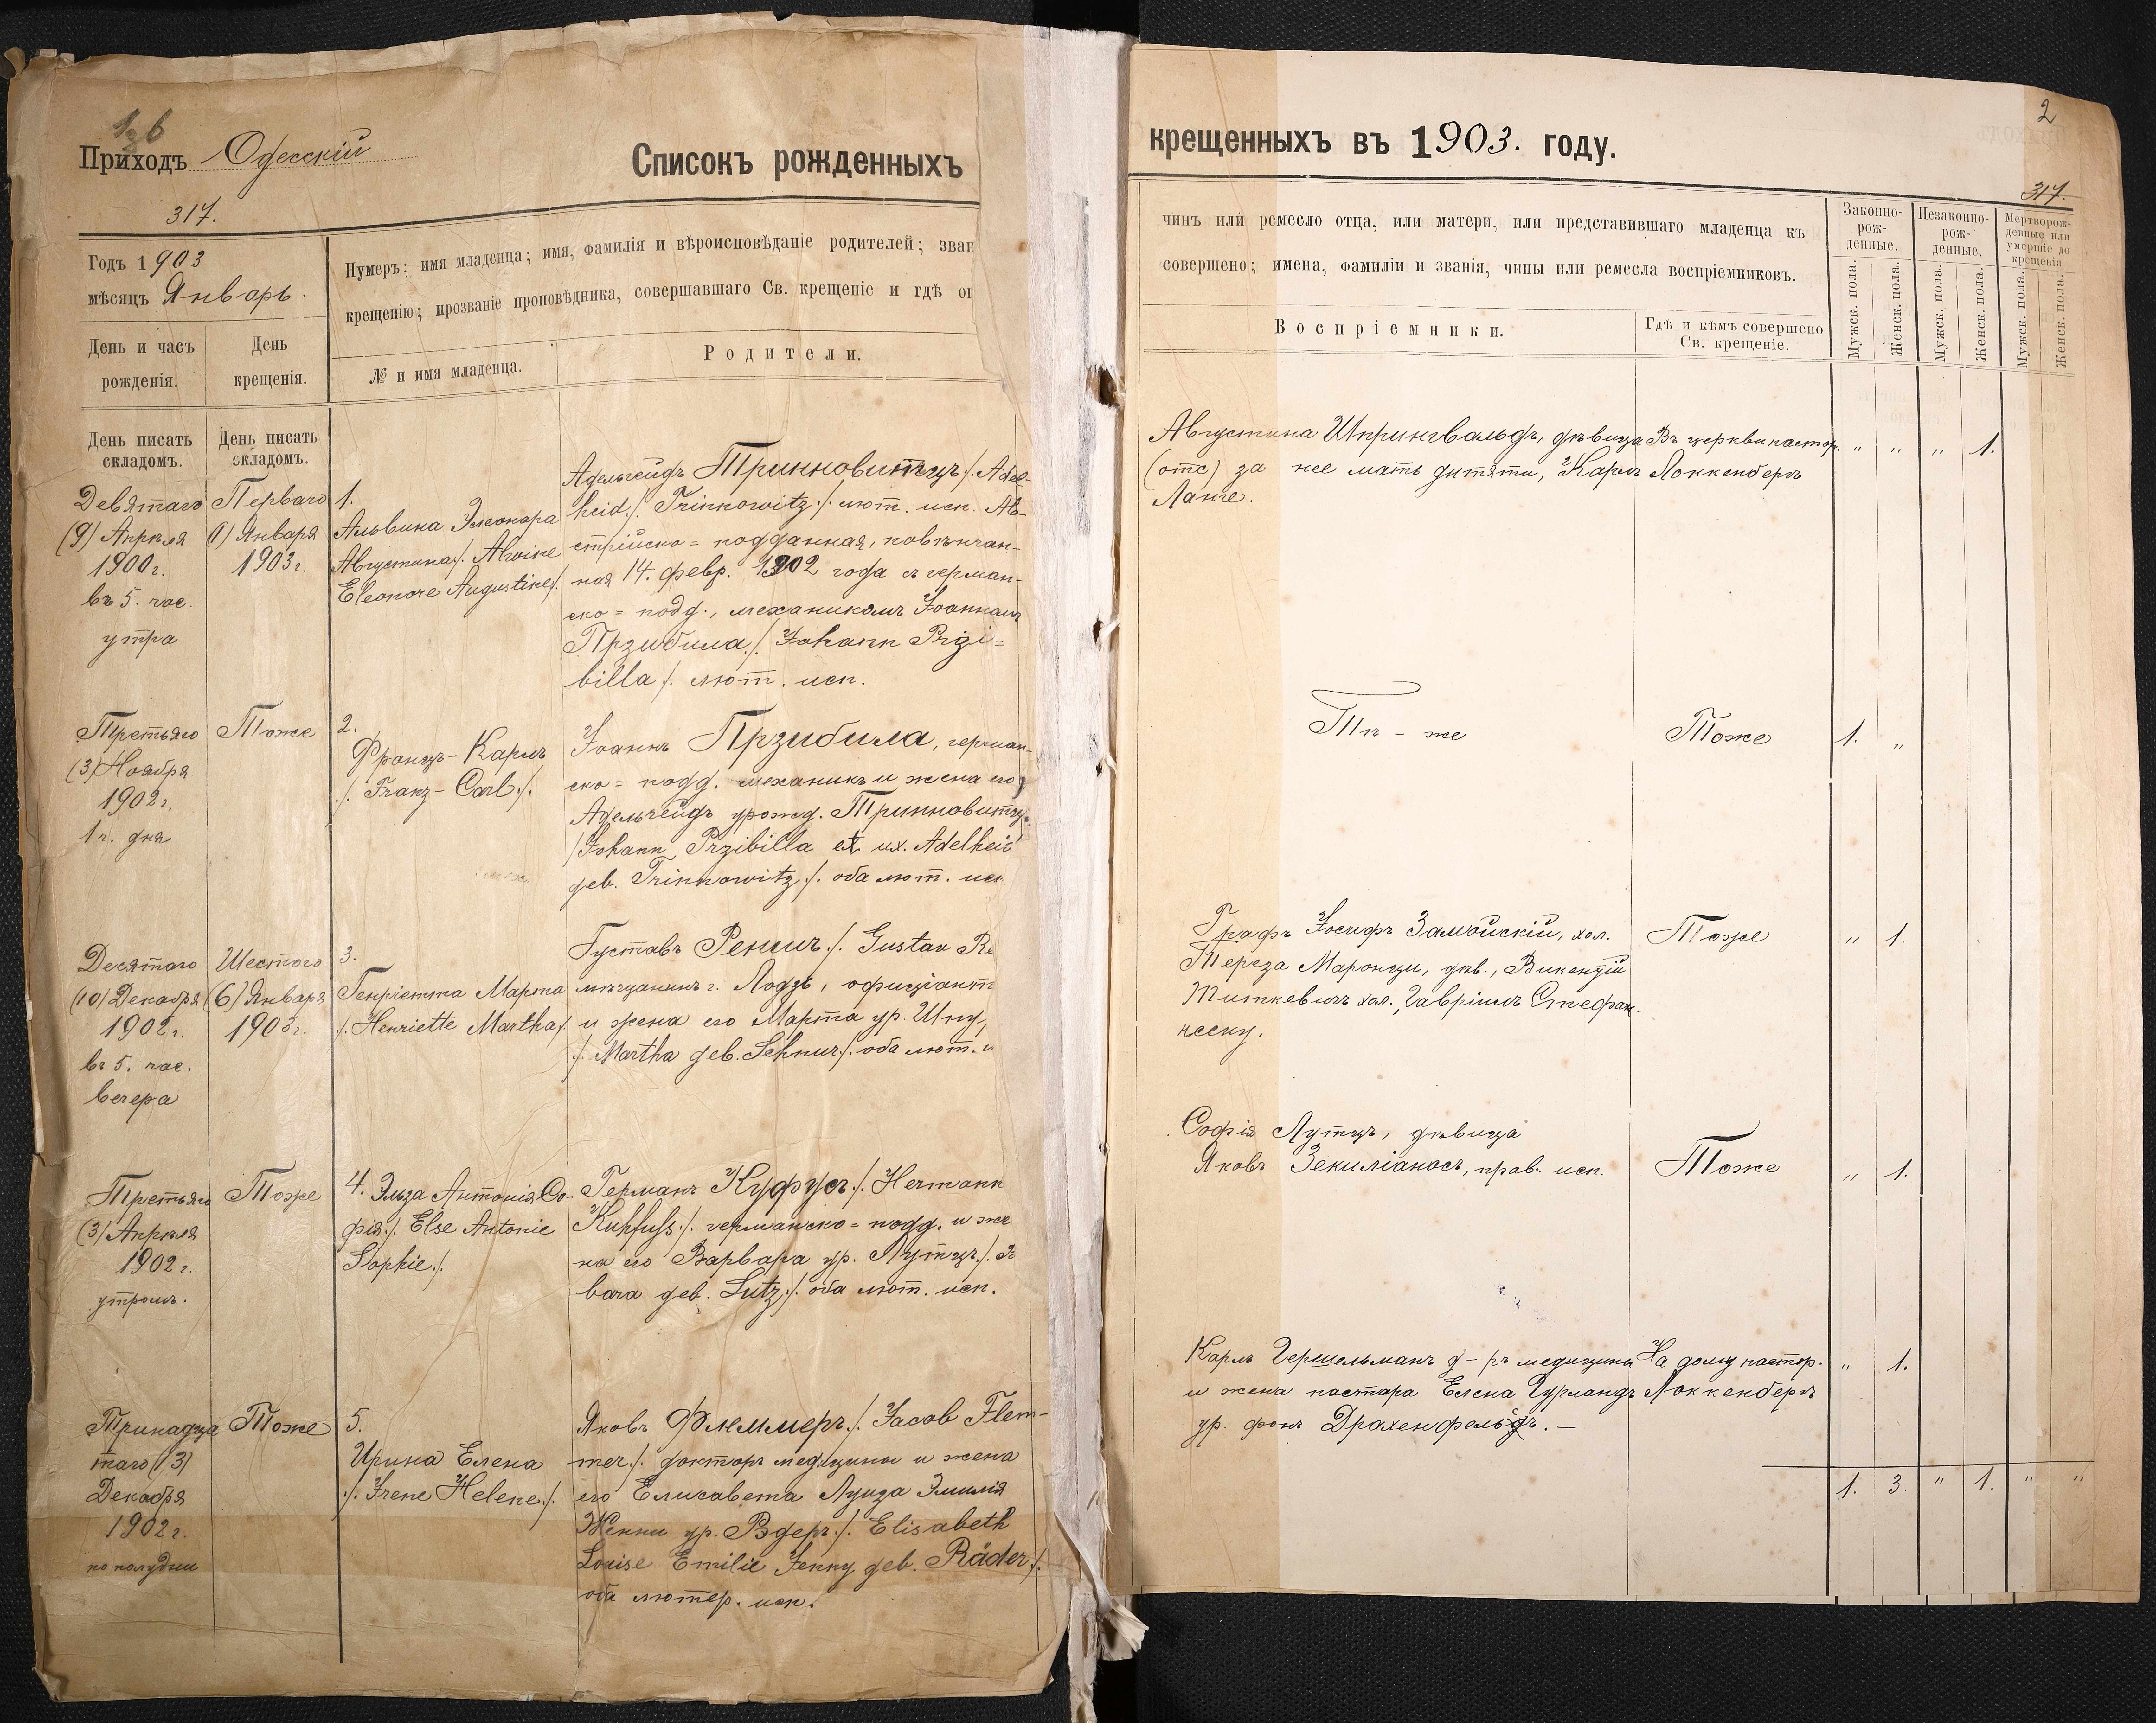 Приходъ Одесскій
317.
Списокъ рожденныхъ
Годъ 1903
мѣсяцъ Январь.
Нумеръ; имя младенца; имя, фамилія и вѣроисповѣданіе родителей; зван
крещенію; прозваніе проповѣдника, совершавшаго Св. крещеніе и гдѣ он
День и часъ
рожденія.
День
крещенія.
№ и имя младенца.
Родители.
День писать
складомъ.
День писать
складомъ.
Девятаго
(9) Апрѣля
1900 г.
въ 5. час.
утра
Перваго
(1) Января
1903 г.
1.
Альвина Элеонора
Августина ./. Alwine
Eleonore Augustine ./.
Адельгейдъ Тринновитцъ ./. Adel-
heid ./. Trinnowitz ./. лют. исп. Ав-
стрійско = подданная, повѣнчан-
ная 14. февр. 1902 года съ герман-
ско = подд., механикомъ Іоанномъ
Прзибила ./. Johann Przi=
billa ./. лют. исп.
Третьяго
(3) Ноября
1902 г.
1 ч. дня
Тоже
2.
Францъ-Карлъ
./. Franz-Carl ./.
Іоаннъ Прзибила, герман-
ско = подд. механикъ и жена его
Адельгейдъ урожд. Тринновитцъ
/ Johann Przibilla et ux. Adelheid
geb. Trinnowitz ./. оба лют. исп
Десятаго
(10) Декабря
1902 г.
въ 5. час.
вечера
Шестого
(6) Января
1903 г.
3.
Генріетта Марта
./. Henriette Martha ./.
Густавъ ./. Gustav Re
мѣщанинъ г. Лодзь, офиціант
и жена его Марта ур. Шну,
./. Martha geb. Schnur ./. оба лют. и
Третьяго
(3) Апрѣля
1902 г.
утромъ.
Тоже
4. Эльза Антонія Со-
фія ./. Else Antonie
Sophie ./.
Германъ Куфусъ ./. Hermann
Kuhfuss ./. германско = подд. и же
на его Варвара ур. Лутцъ ./. Б
bara geb. Lutz ./. оба лют. исп.
Тринадца
таго (13)
Декабря
1902 г.
по полудни
Тоже
5.
Ирина Елена
./. Irene Helene ./.
Яковъ Флеммеръ ./. Jacob Flem-
mer ./. докторъ медицины и жена
его Елисавета Луиза Эмилія
Женни ур. Рэдеръ ./. Elisabeth
Louise Emilie Jenny geb. Räder ./.
оба лютер. исп.
2
крещенныхъ въ 1903. году.
317.
чинъ или ремесло отца, или матери, или представившаго младенца къ
совершено; имена, фамиліи и званія, чины или ремесла воспріемниковъ.
Воспріемники.
Гдѣ и кѣмъ совершено
Св. крещеніе.
Законно-
рож-
денные.
Незаконно-
рож-
денные.
Мертворож-
денные или
умершіе до
крещенія
Мужск. пола.
Женск. пола.
Мужск. пола.
Женск. пола.
Мужск. пола.
Женск. пола.
Августина Шпрингвальдъ, дѣвица
(отс) за нее мать дитяти, Карлъ
Ланге.
Въ церкви пастор.
Локкенбергъ
" " " 1.
Тѣ - же
Тоже
1. "
Графъ Іосифъ Замойскій, хол.
Тереза Маронзи, дѣв., Викентій
Титкевичъ хол., Гавріилъ Стефан-
неску.
Тоже
" 1.
Софія Лутцъ, дѣвица
Яковъ Зекиліаносъ, прав. исп.
Тоже
" 1.
Карлъ Гершельманъ д-ръ медицины
и жена пастора Елена Гурландъ
ур. фонъ Драхенфельдъ. —
На дому пастор.
Локкенбергъ
" 1.
1. 3. " 1. " "